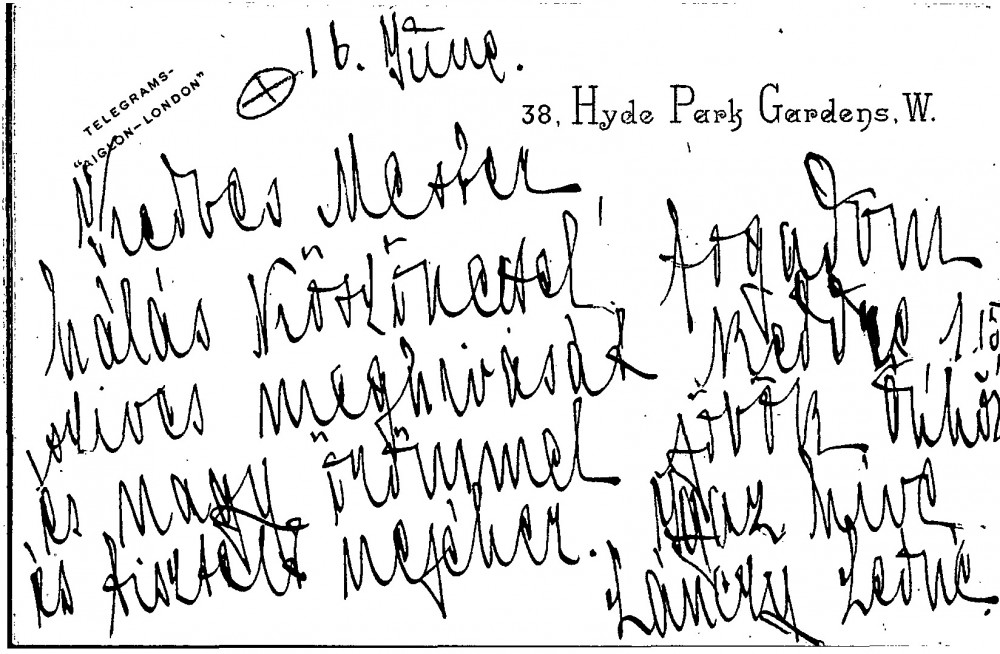 16. June.
TELEGRAMS-
"AIGLON-LONDON"
38, Hyde Park Gardens, W.
Kedves Mester
hálás köszönettel fogadom
szives meghivását 1.15
és nagy örömmel jövök önhöz
és tisztelt nejéhez. Igaz híve
Lánczy Leóné.